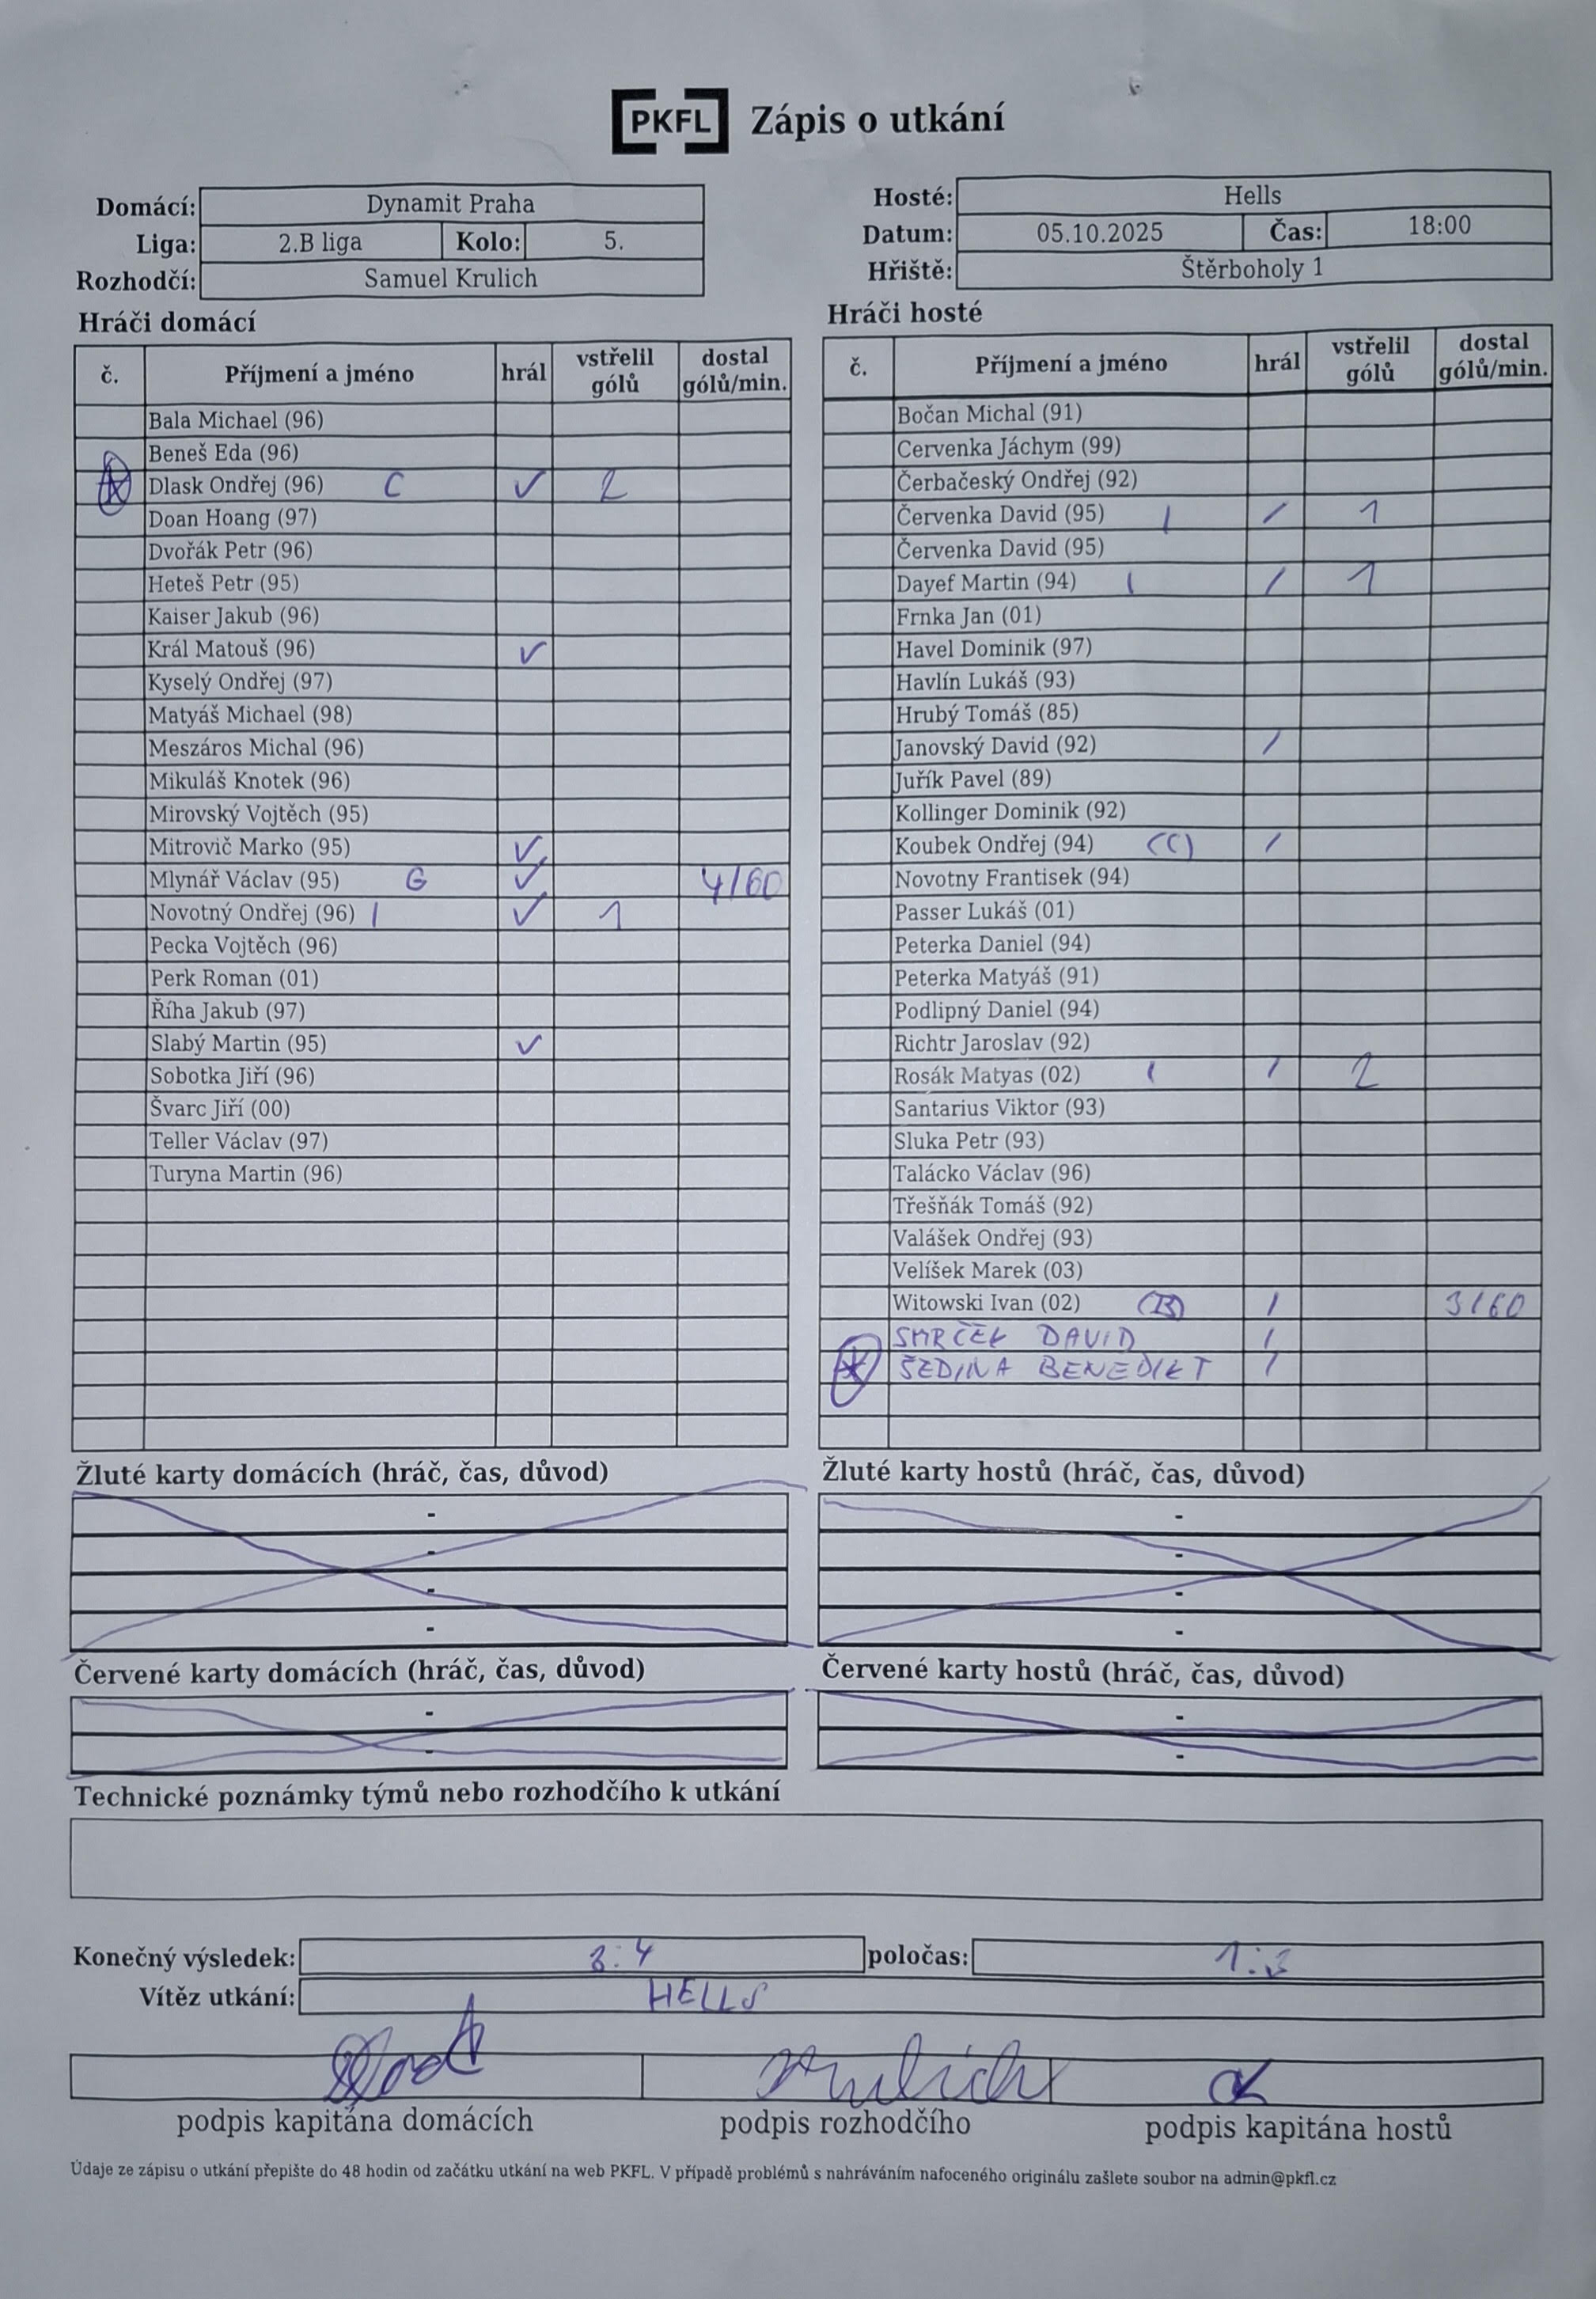 PKFL Zápis o utkání
Domácí: Dynamit Praha
Liga: 2.B liga Kolo: 5.
Rozhodčí: Samuel Krulich
Hosté: Hells
Datum: 05.10.2025 Čas: 18:00
Hřiště: Štěrboholy 1
Hráči domácí
č. Příjmení a jméno hrál vstřelil gólů dostal gólů/min.
Bala Michael (96)
Beneš Eda (96)
Dlask Ondřej (96) C ✓ 2
Doan Hoang (97)
Dvořák Petr (96)
Heteš Petr (95)
Kaiser Jakub (96)
Král Matouš (96) ✓
Kyselý Ondřej (97)
Matyáš Michael (98)
Meszáros Michal (96)
Mikuláš Knotek (96)
Mirovský Vojtěch (95)
Mitrovič Marko (95) ✓
Mlynář Václav (95) G ✓ 4/60
Novotný Ondřej (96) | ✓ 1
Pecka Vojtěch (96)
Perk Roman (01)
Říha Jakub (97)
Slabý Martin (95) ✓
Sobotka Jiří (96)
Švarc Jiří (00)
Teller Václav (97)
Turyna Martin (96)
Hráči hosté
č. Příjmení a jméno hrál vstřelil gólů dostal gólů/min.
Bočan Michal (91)
Cervenka Jáchym (99)
Čerbačeský Ondřej (92)
Červenka David (95) | / 1
Červenka David (95)
Dayef Martin (94) | / 1
Frnka Jan (01)
Havel Dominik (97)
Havlín Lukáš (93)
Hrubý Tomáš (85)
Janovský David (92) /
Juřík Pavel (89)
Kollinger Dominik (92)
Koubek Ondřej (94) (C) /
Novotny Frantisek (94)
Passer Lukáš (01)
Peterka Daniel (94)
Peterka Matyáš (91)
Podlipný Daniel (94)
Richtr Jaroslav (92)
Rosák Matyas (02) | / 2
Santarius Viktor (93)
Sluka Petr (93)
Talácko Václav (96)
Třešňák Tomáš (92)
Valášek Ondřej (93)
Velíšek Marek (03)
Witowski Ivan (02) (B) / 3/60
SMRČEK DAVID /
ŠEDINA BENEDIKT /
Žluté karty domácích (hráč, čas, důvod)
-
-
-
-
Žluté karty hostů (hráč, čas, důvod)
-
-
-
-
Červené karty domácích (hráč, čas, důvod)
-
-
Červené karty hostů (hráč, čas, důvod)
-
-
Technické poznámky týmů nebo rozhodčího k utkání
Konečný výsledek: 3:4 poločas: 1:3
Vítěz utkání: HELLS
Krulich
podpis kapitána domácích podpis rozhodčího podpis kapitána hostů
Údaje ze zápisu o utkání přepište do 48 hodin od začátku utkání na web PKFL. V případě problémů s nahráváním nafoceného originálu zašlete soubor na admin@pkfl.cz